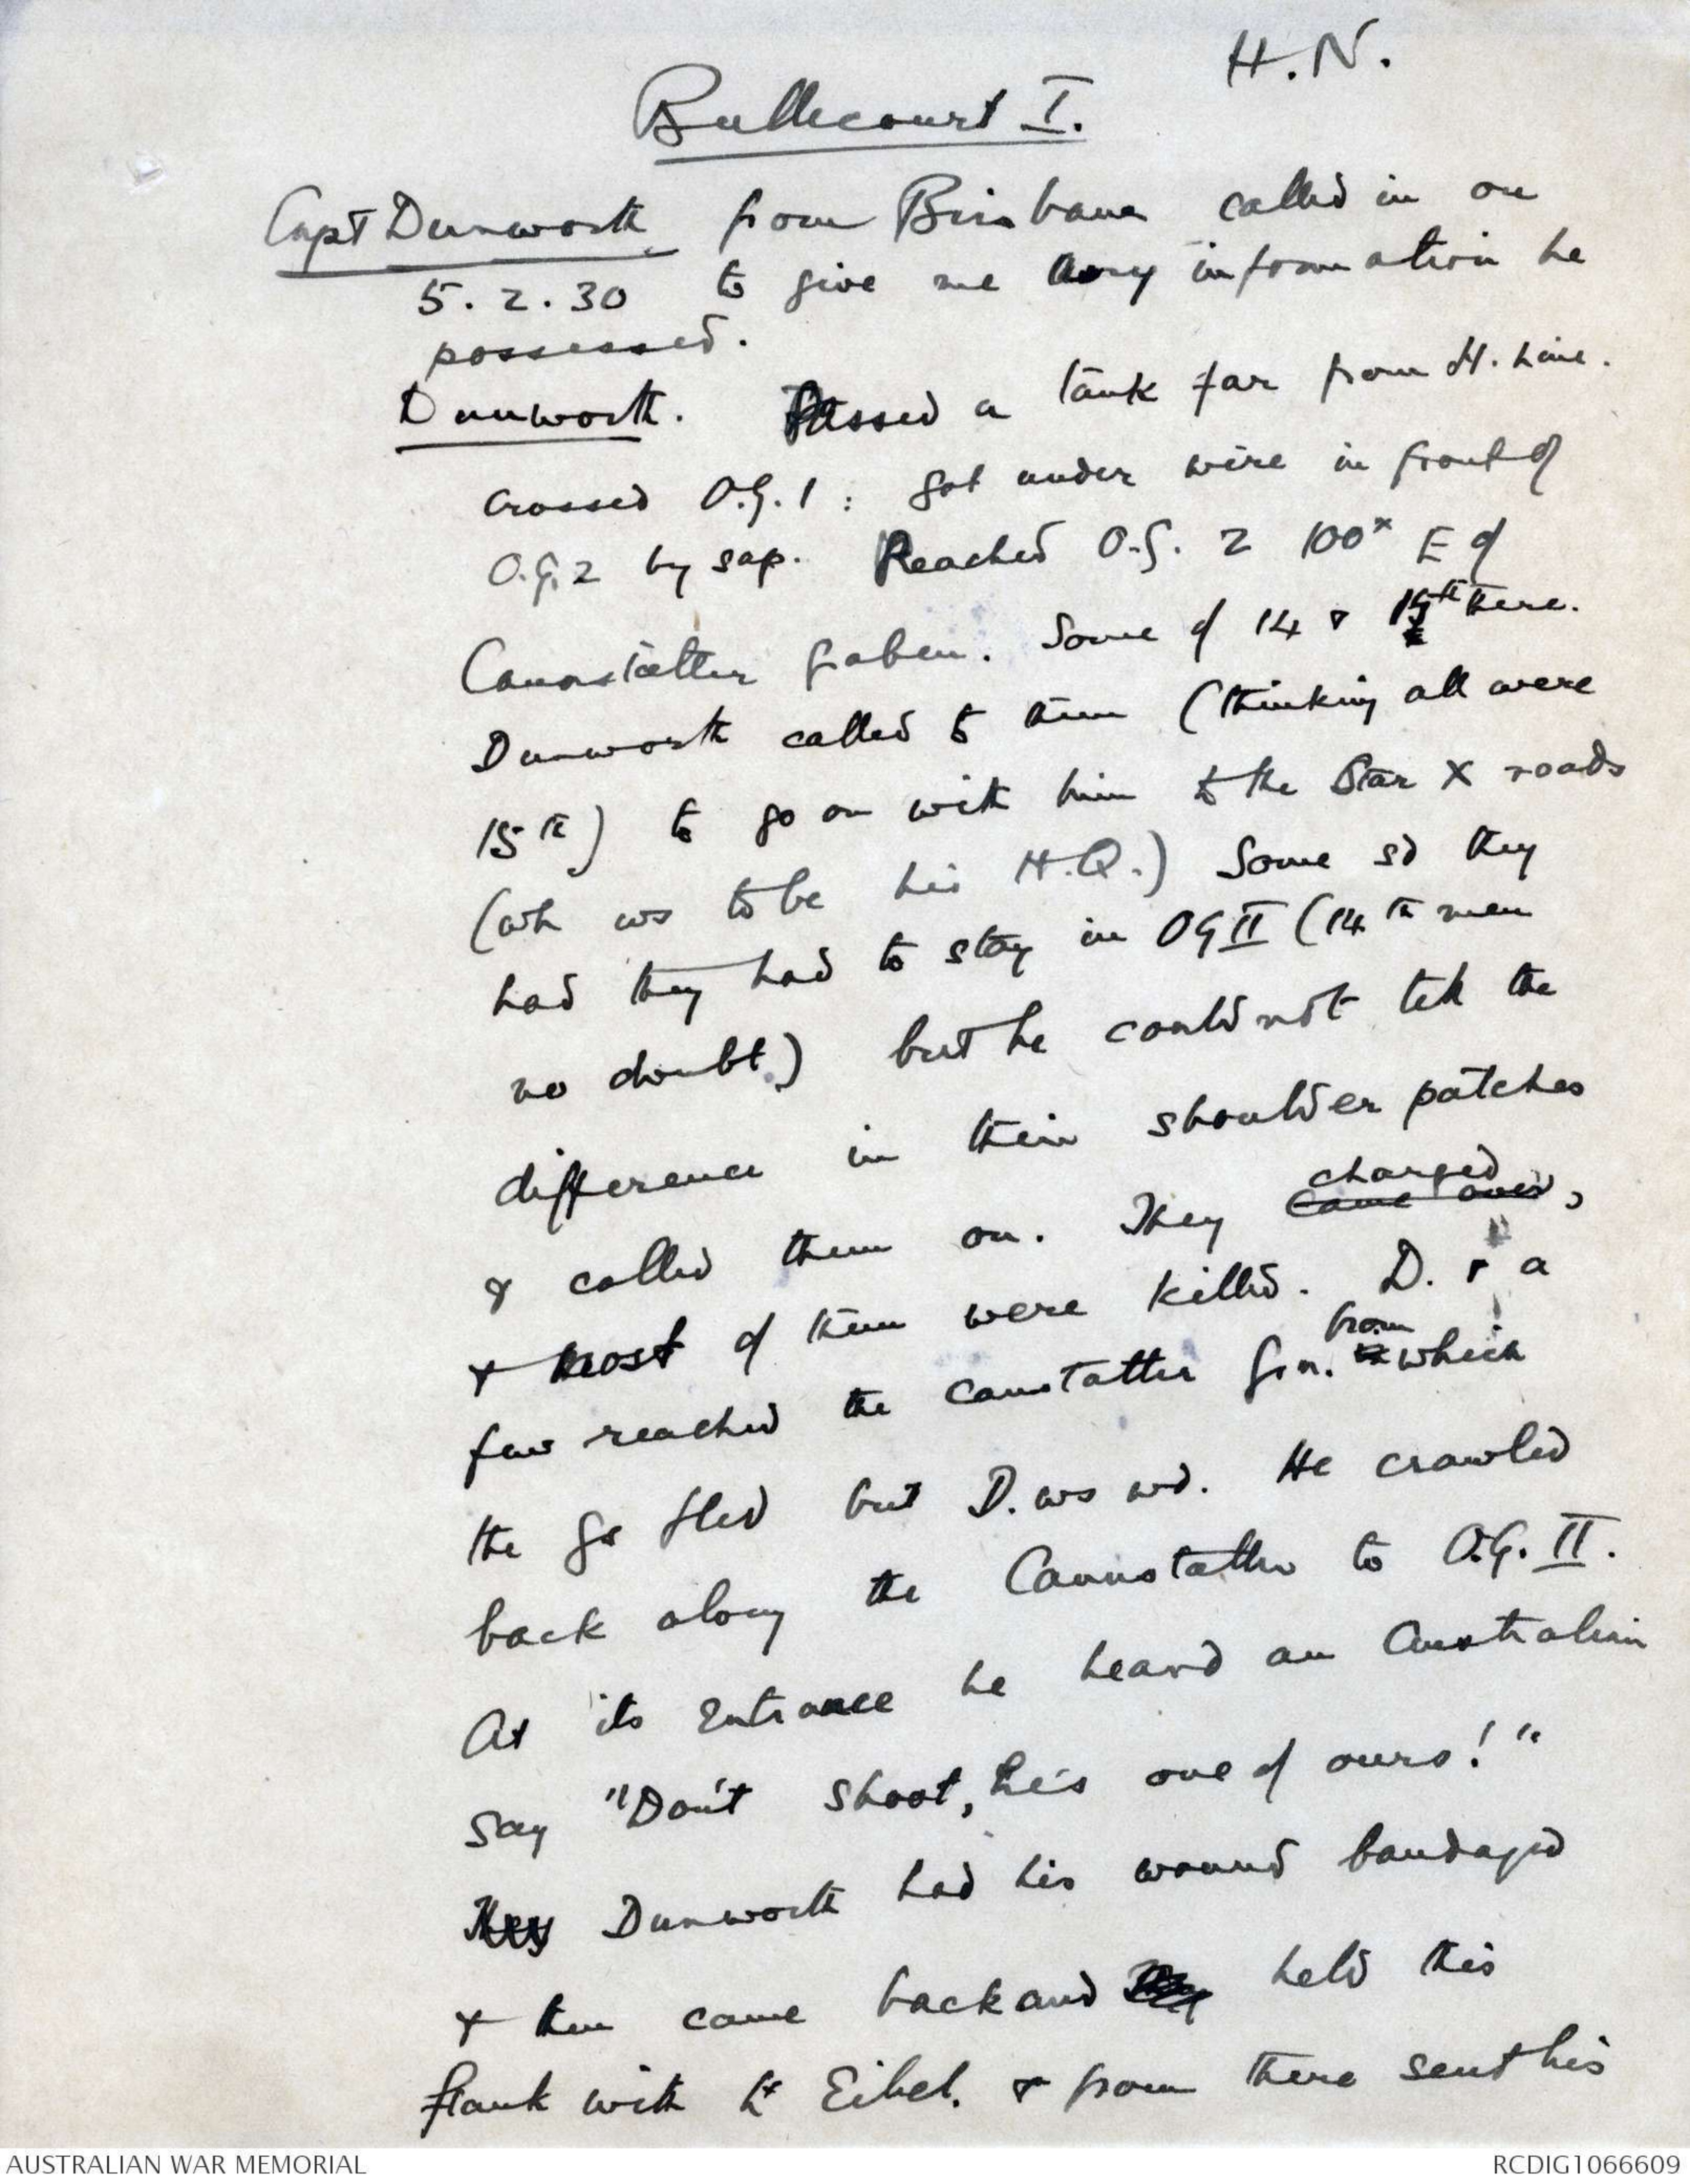 H.N.
Bullecourt I.
Capt Dunworth from Brisbane called in on
5.2.30 to give me any information he
possessed.
Dunworth. Passed a tank far from H. Line.
crossed O.G.1: got under wire in front of
O.G.2 by sap. Reached O.G. 2 100x E of
Cannstatter graben. Some of 14 & 15th there.
Dunworth called to them (thinking all were
15th) to go on with him to the Star X roads
(wh ws to be his H.Q.) Some sd they
had they had to stay in OG II (14th men
no doubt.) but he could not tell the
difference in their shoulder patches
& called them on. They came over, charged
& most of them were killed. D. & a
few reached the Cannstatter Grn. from which
the Gs fled but D. ws wd. He crawled
back along the Cannstatter to O.G. II.
At its entrance he heard an Australian
say "Don't shoot, he's one of ours!"
They Dunworth had his wound bandaged
& then came back and held this
flank with Lt Eibel. & from there sent his
AUSTRALIAN WAR MEMORIAL
RCDIG1066609